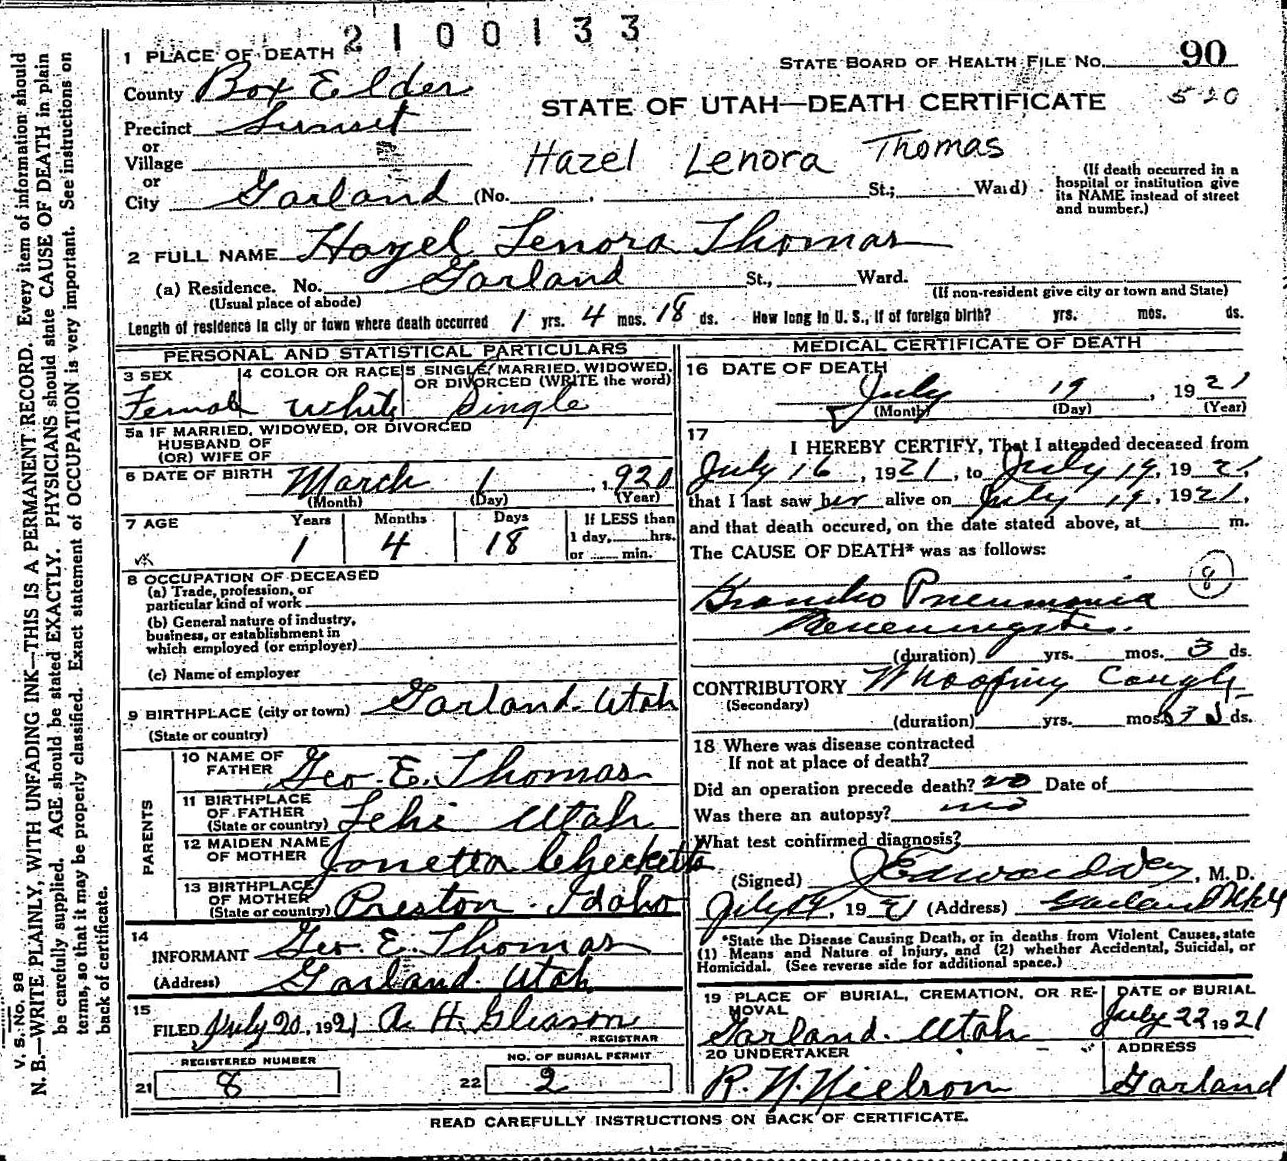 2100133
1 PLACE OF DEATH
STATE BOARD OF HEALTH FILE NO. 90
County Box Elder
STATE OF UTAH—DEATH CERTIFICATE 520
Precinct Sunset
or
Village
Hazel Lenora Thomas
or
City Garland (No. , St.; Ward)
(If death occurred in a hospital or institution give its NAME instead of street and number.)
2 FULL NAME Hazel Lenora Thomas
(a) Residence. No. Garland St., Ward.
(Usual place of abode)
(If non-resident give city or town and State)
Length of residence in city or town where death occurred 1 yrs. 4 mos. 18 ds. How long in U. S., if of foreign birth? yrs. mos. ds.
PERSONAL AND STATISTICAL PARTICULARS
3 SEX
Female
4 COLOR OR RACE
White
5 SINGLE, MARRIED, WIDOWED,
OR DIVORCED (WRITE the word)
Single
5a IF MARRIED, WIDOWED, OR DIVORCED
HUSBAND OF
(OR) WIFE OF
6 DATE OF BIRTH March 1, 1920
(Month) (Day) (Year)
7 AGE
Years Months Days
1 4 18
If LESS than
1 day, hrs.
or min.
8 OCCUPATION OF DECEASED
(a) Trade, profession, or
particular kind of work
(b) General nature of industry,
business, or establishment in
which employed (or employer)
(c) Name of employer
9 BIRTHPLACE (city or town) Garland Utah
(State or country)
PARENTS
10 NAME OF
FATHER Geo. E. Thomas
11 BIRTHPLACE
OF FATHER
(State or country) Lehi Utah
12 MAIDEN NAME
OF MOTHER Jonetta Checketts
13 BIRTHPLACE
OF MOTHER
(State or country) Preston Idaho
14
INFORMANT Geo E. Thomas
(Address) Garland Utah
15
FILED July 20, 1921 A. H. Gleason
REGISTRAR
REGISTERED NUMBER
21 8
NO. OF BURIAL PERMIT
22 2
MEDICAL CERTIFICATE OF DEATH
16 DATE OF DEATH
July 19, 1921
(Month) (Day) (Year)
17
I HEREBY CERTIFY, That I attended deceased from
July 16, 1921, to July 19, 1921,
that I last saw her alive on July 19, 1921,
and that death occured, on the date stated above, at m.
The CAUSE OF DEATH* was as follows:
8
Broncho Pneumonia
(duration) yrs. mos. 3 ds.
CONTRIBUTORY Whooping Cough
(Secondary)
(duration) yrs. mos. ds.
18 Where was disease contracted
If not at place of death?
Did an operation precede death? no Date of
Was there an autopsy? no
What test confirmed diagnosis?
(Signed) M. D.
July 19, 1921 (Address) Garland Utah
*State the Disease Causing Death, or in deaths from Violent Causes, state
(1) Means and Nature of Injury, and (2) whether Accidental, Suicidal, or
Homicidal. (See reverse side for additional space.)
19 PLACE OF BURIAL, CREMATION, OR RE-
MOVAL
Garland Utah
DATE OF BURIAL
July 22, 1921
20 UNDERTAKER
R. N. Nielson
ADDRESS
Garland
READ CAREFULLY INSTRUCTIONS ON BACK OF CERTIFICATE.
V. S. No. 98
N. B.—WRITE PLAINLY, WITH UNFADING INK—THIS IS A PERMANENT RECORD. Every item of information should
be carefully supplied. AGE should be stated EXACTLY. PHYSICIANS should state CAUSE OF DEATH in plain
terms, so that it may be properly classified. Exact statement of OCCUPATION is very important. See instructions on
back of certificate.